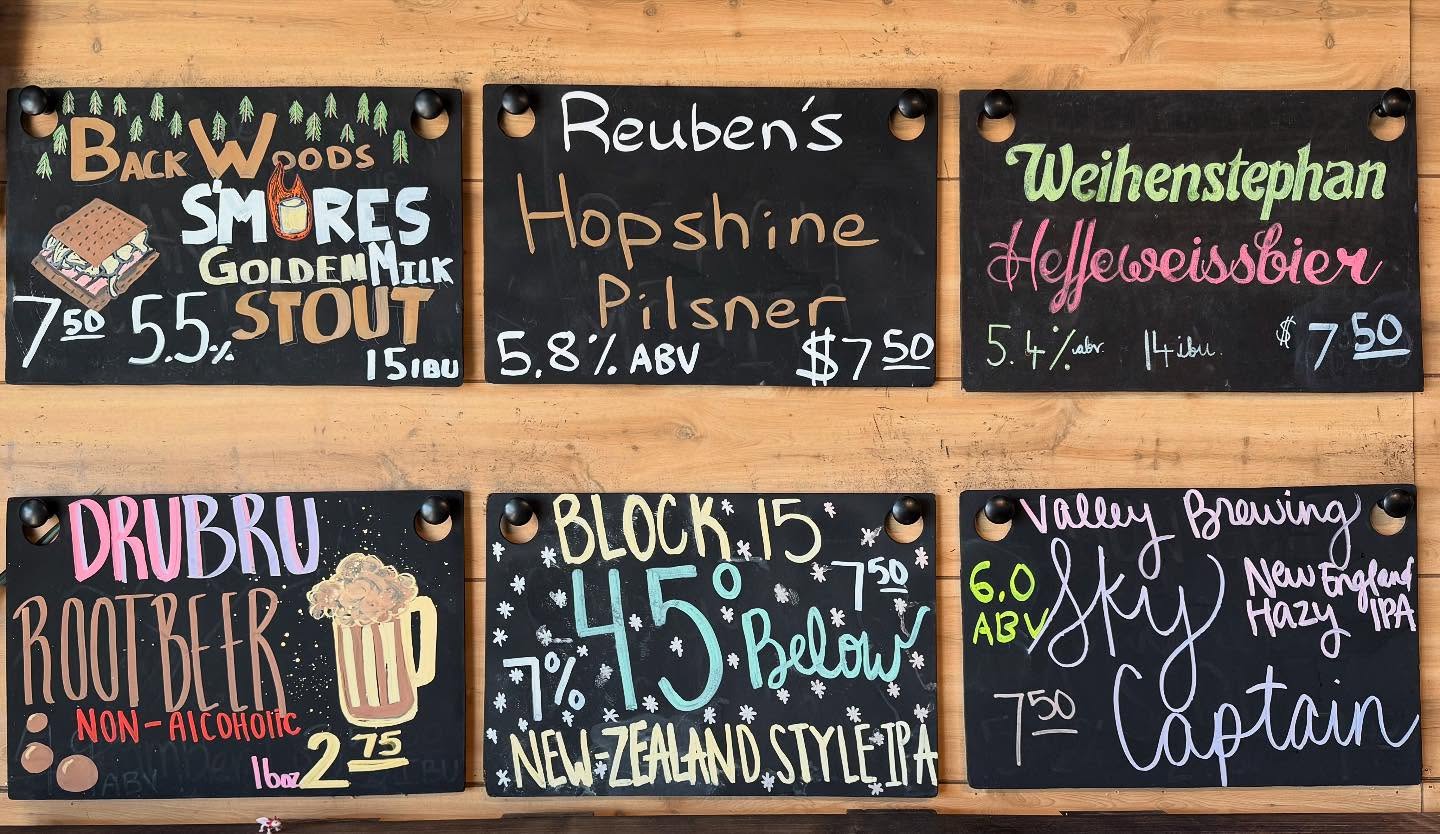 BACK WOODS
S'MORES
GOLDEN MILK
STOUT
7.50 5.5%
15 IBU
Reuben's
Hopshine
Pilsner
5.8% ABV $7.50
Weihenstephan
Heffeweissbier
5.4% abv. 14 ibu. $7.50
DRUBRU
ROOT BEER
NON-AlCOHOlIC
16oz 2.75
ABV IBU
BLOCK 15
7.50
45° Below
7%
NEW-ZEALAND STYLE IPA
Valley Brewing
6.0
ABV
Sky
New England
Hazy IPA
7.50
Captain